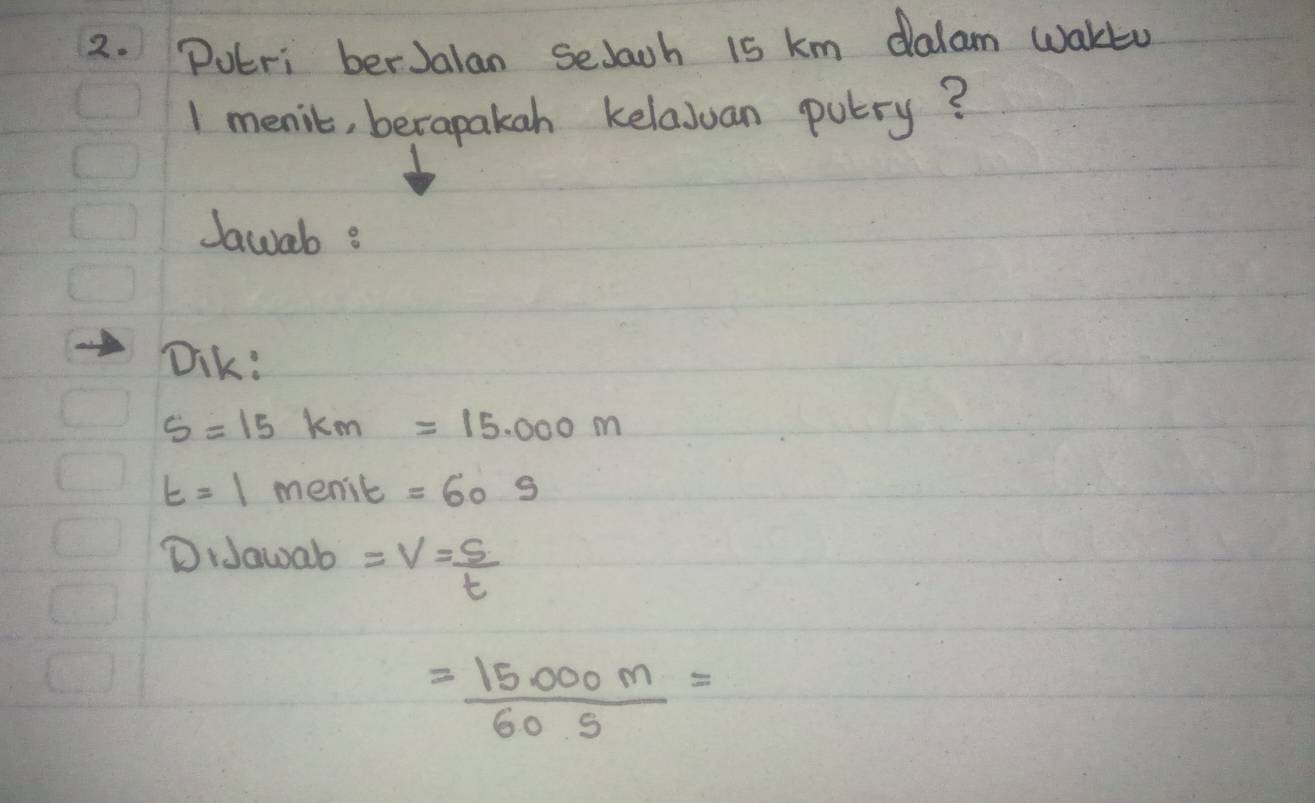 2. Putri berjalan sejauh 15 km dalam waktu
1 menit, berapakah kelajuan putry?
Jawab :
→ Dik:
S = 15 km = 15.000 m
t = 1 menit = 60 s
Dijawab = V = S/t
= 15.000 m / 60 s =